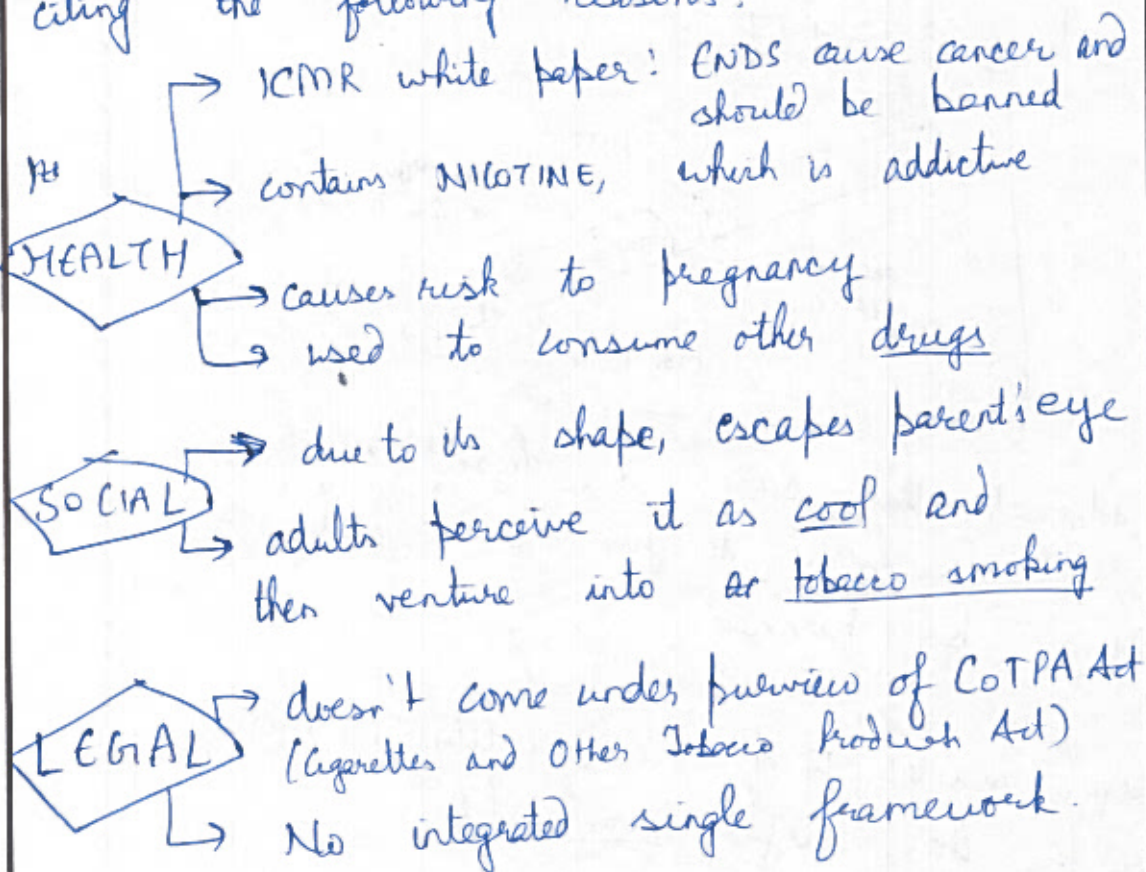 citing the following reasons:
→ ICMR white paper: ENDS cause cancer and
should be banned
→ contains NICOTINE, which is addictive
HEALTH
→ causes risk to pregnancy
→ used to consume other drugs
→ due to its shape, escapes parent's eye
SOCIAL
→ adults perceive it as cool and
then venture into tobacco smoking
→ doesn't come under purview of COTPA Act
LEGAL
(Cigarettes and Other Tobacco Products Act)
→ No integrated single framework.